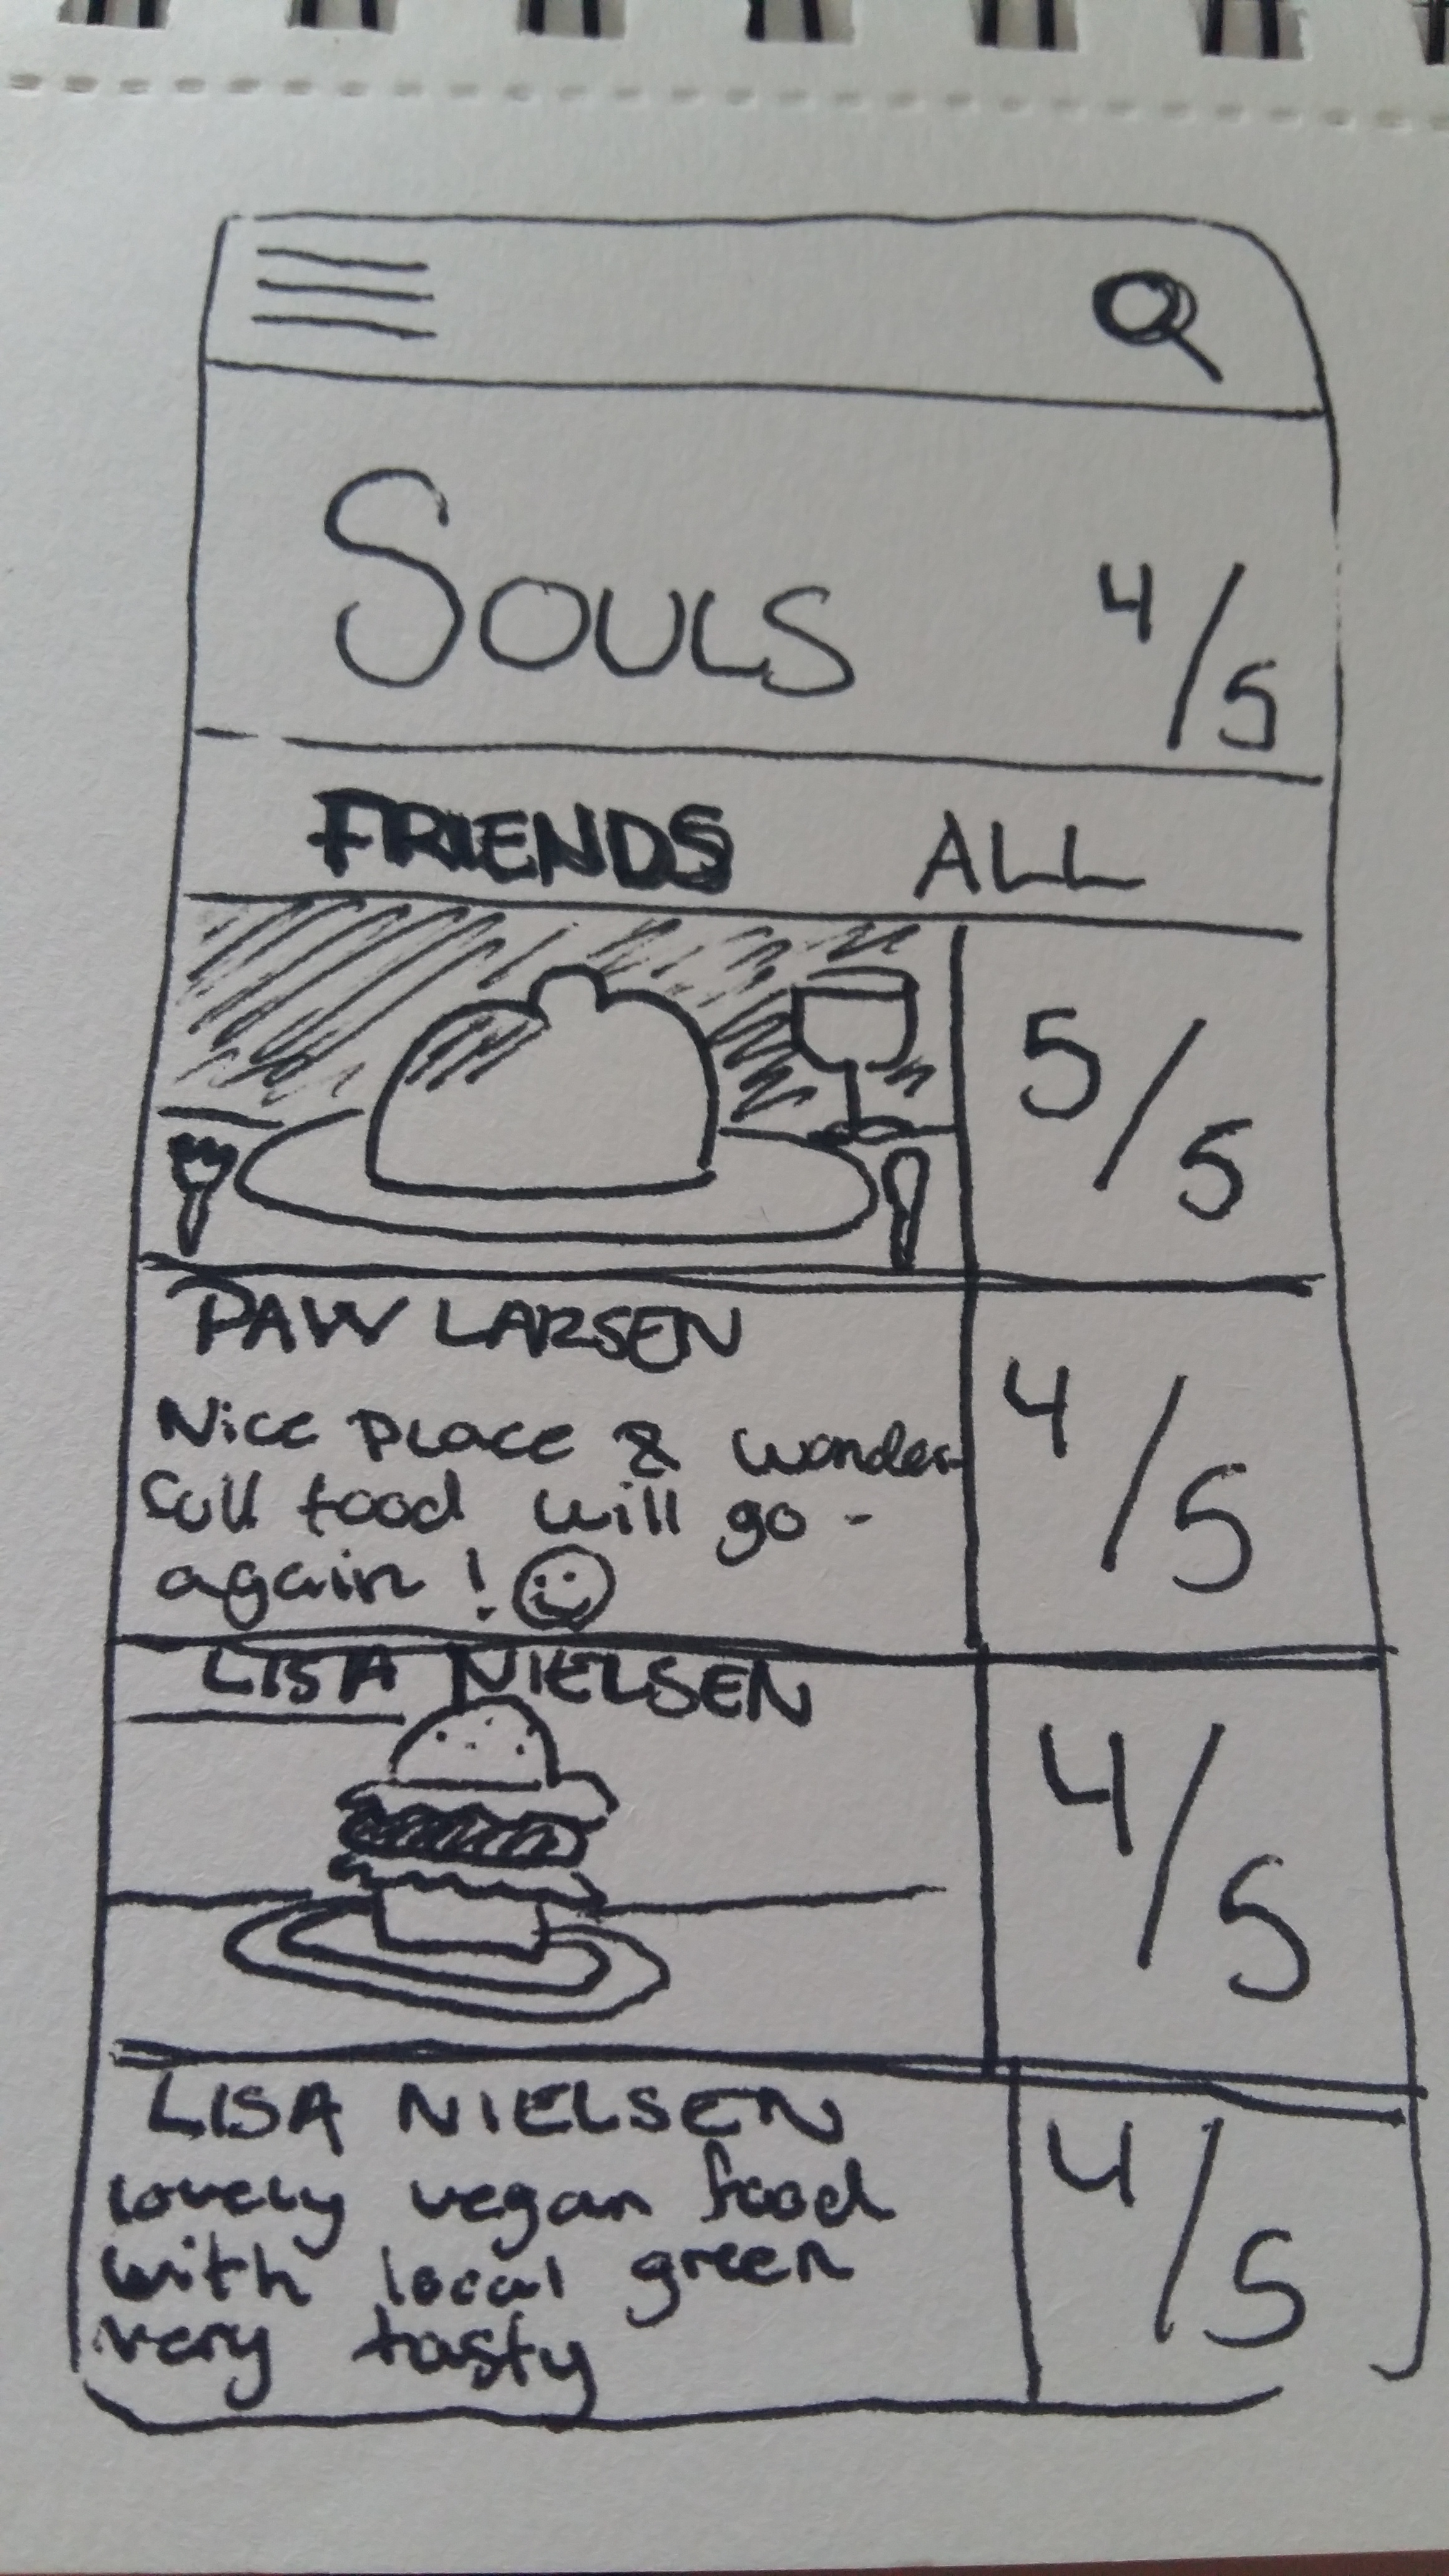 SOULS 4/5
FRIENDS ALL
5/5
PAW LARSEN
Nice place & wonder-
full food will go -
again ! 4/5
LISA NIELSEN
4/5
LISA NIELSEN
lovely vegan food
with local green
very tasty 4/5